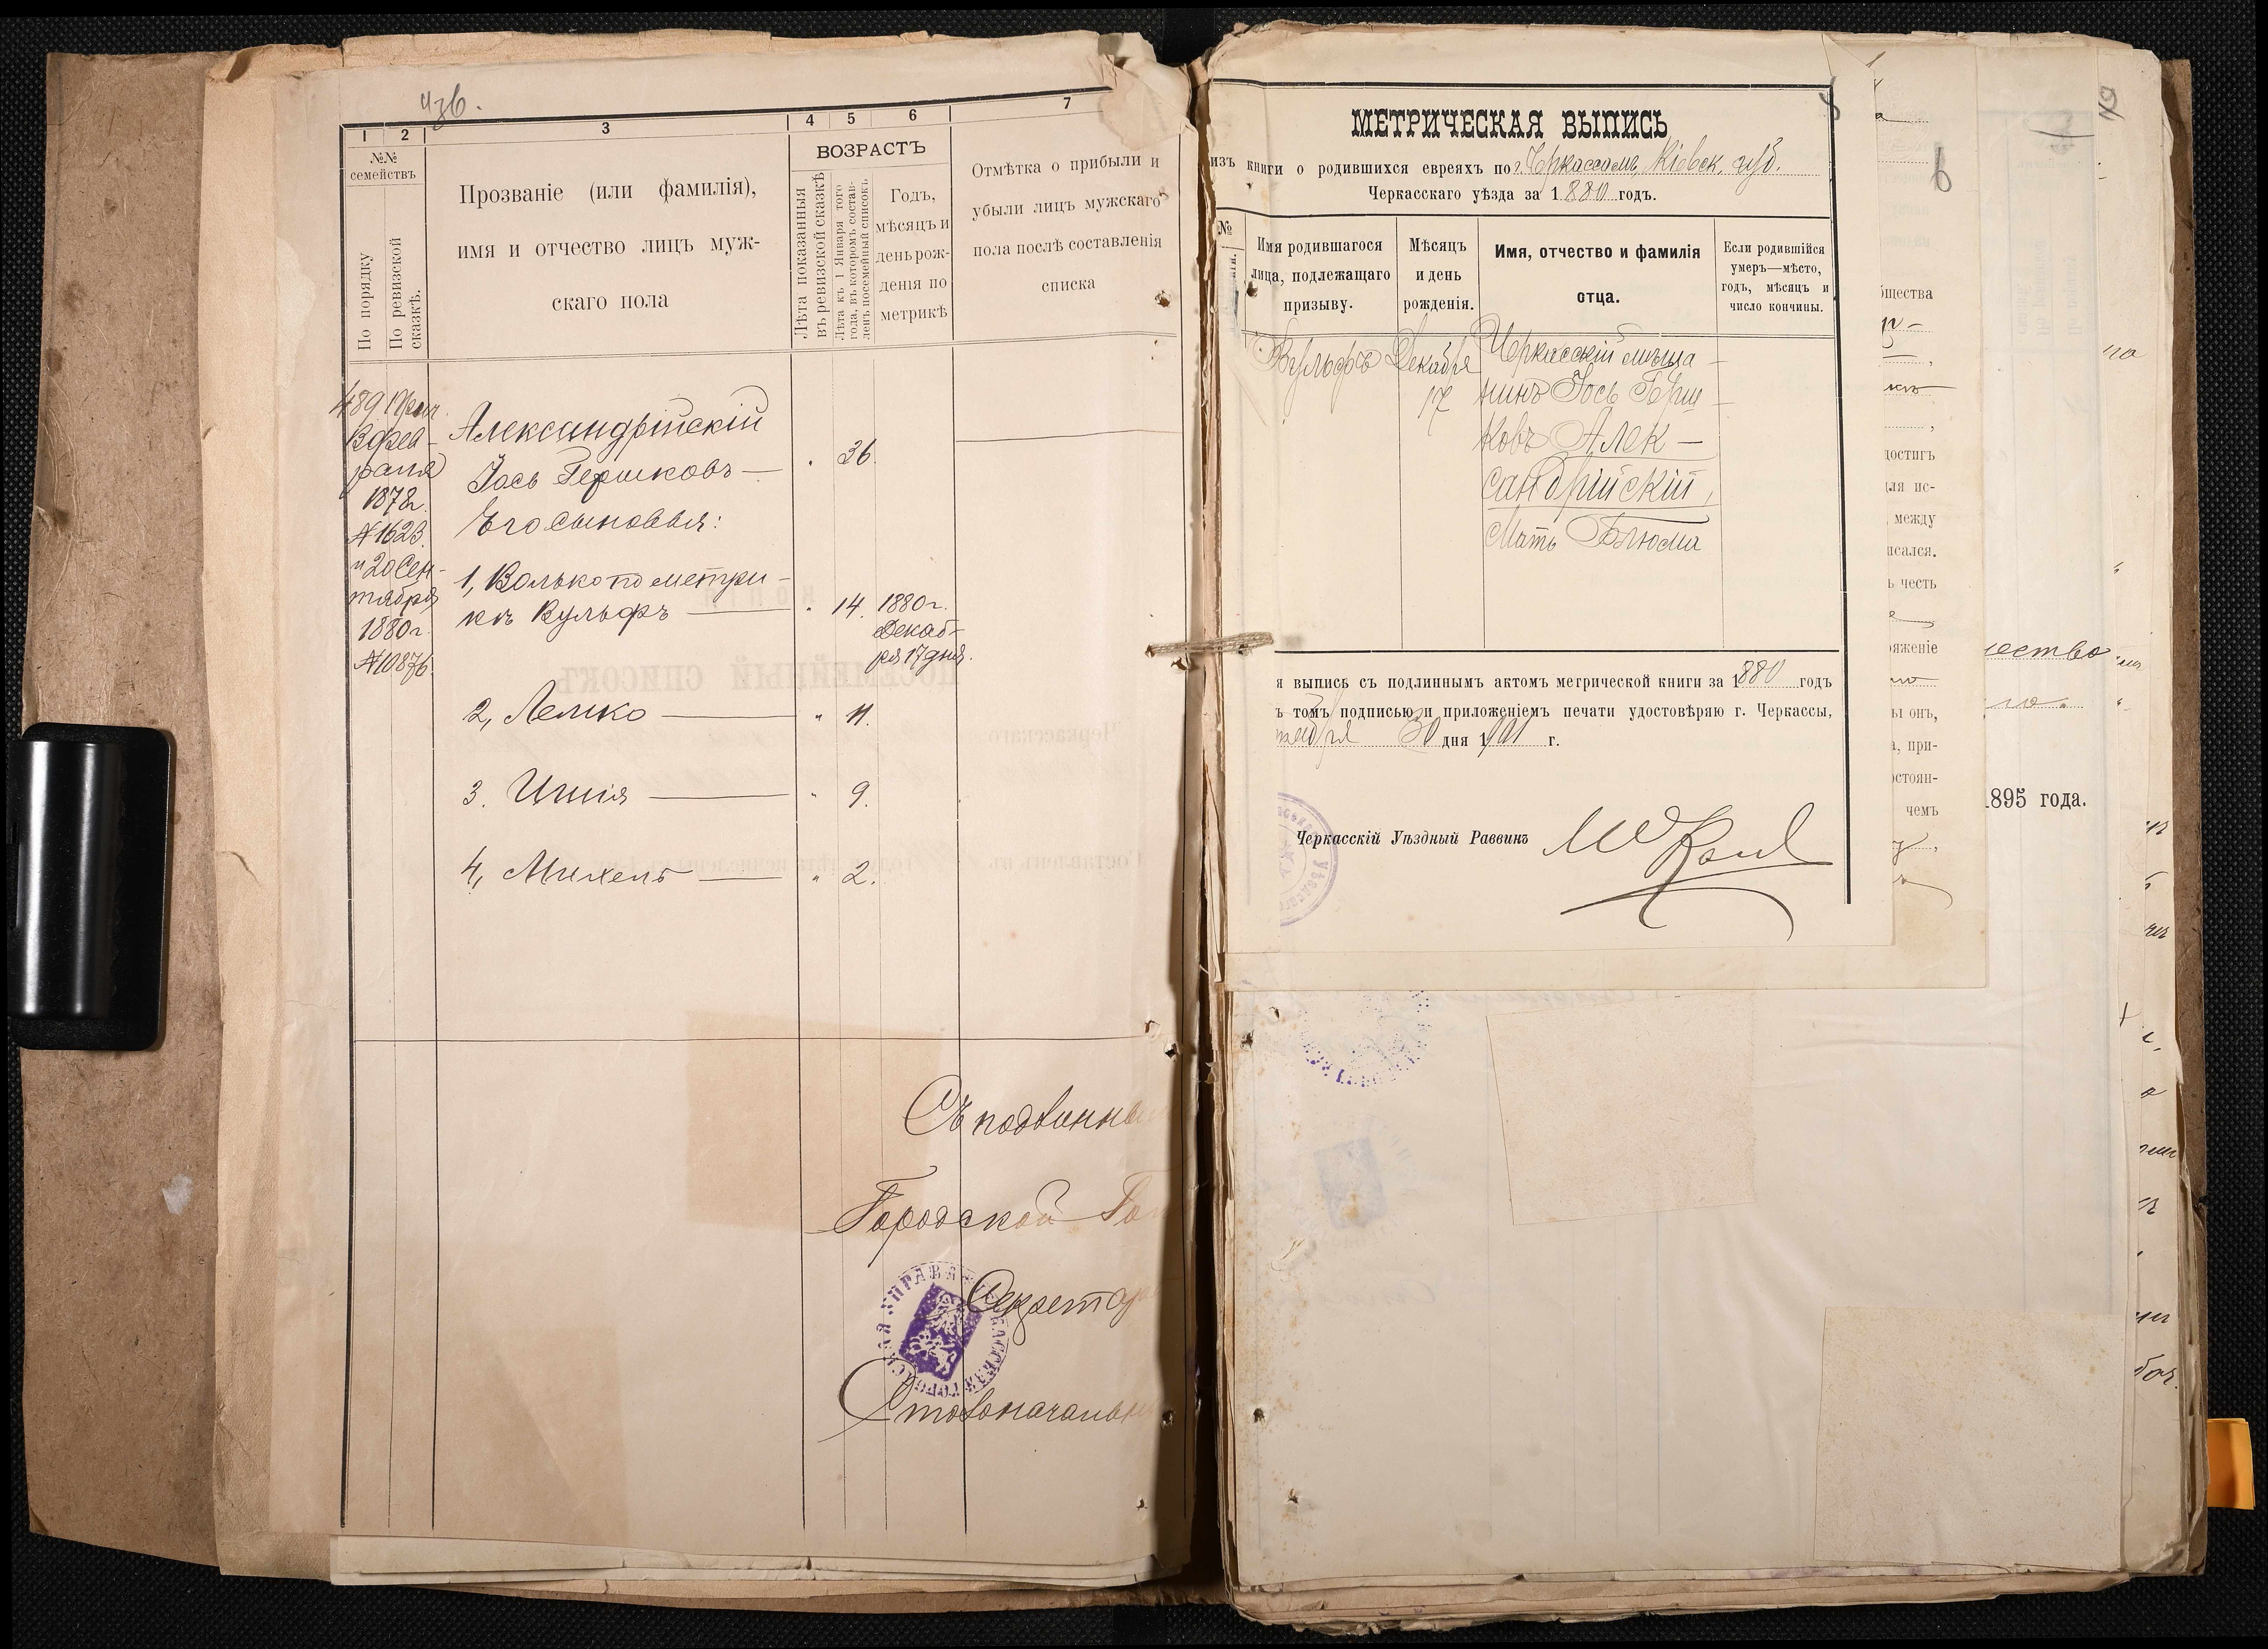 1
2
3
4
5
6
7
№№
семействъ
По порядку
По ревизской
сказкѣ.
Прозваніе (или фамилія),
имя и отчество лицъ муж-
скаго пола
ВОЗРАСТЪ
Лѣта показанныя
въ ревизской сказкѣ
Лѣта къ 1 Января того
года, въ которомъ состав-
ленъ посемейный списокъ
Годъ,
мѣсяцъ и
день рож-
денія по
метрикѣ
Отмѣтка о прибыли и
убыли лицъ мужскаго
пола послѣ составленія
списка
489
13 фев-
раля
1878г.
№ 1623.
и 20 Сен-
тября
1880г.
№ 10876.
Александрійскій
Іось Гершковъ — 36.
Его сыновья:
1, Волько по метри-
кѣ Вульфъ — 14. 1880г.
Декаб-
ря 17 дня.
2, Лемко — 11.
3. Шпія — 9.
4, Михель — 2.
Съ подлинны
Городской
Секретар
Столоначальн
МЕТРИЧЕСКАЯ ВЫПИСЬ
изъ книги о родившихся евреяхъ по г. Черкассамъ, Кіевск. губ.
Черкасскаго уѣзда за 1880 годъ.
№
Имя родившагося
лица, подлежащаго
призыву.
Мѣсяцъ
и день
рожденія.
Имя, отчество и фамилія
отца.
Если родившійся
умеръ—мѣсто,
годъ, мѣсяцъ и
число кончины.
Вульфъ
Декабря
17
Черкасскій мѣща-
нинъ Іось Герш-
ковъ Алек-
сандрійскій,
Мать Блюма
я выпись съ подлиннымъ актомъ метрической книги за 1880 годъ
ъ томъ подписью и приложеніемъ печати удостовѣряю г. Черкассы,
30 дня 1901 г.
Черкасскій Уѣздный Раввинъ
6
бщества
достигъ
для ис-
между
исался.
ь честь
ряженіе
ы онъ,
а, при-
остоян-
чемъ
1895 года.